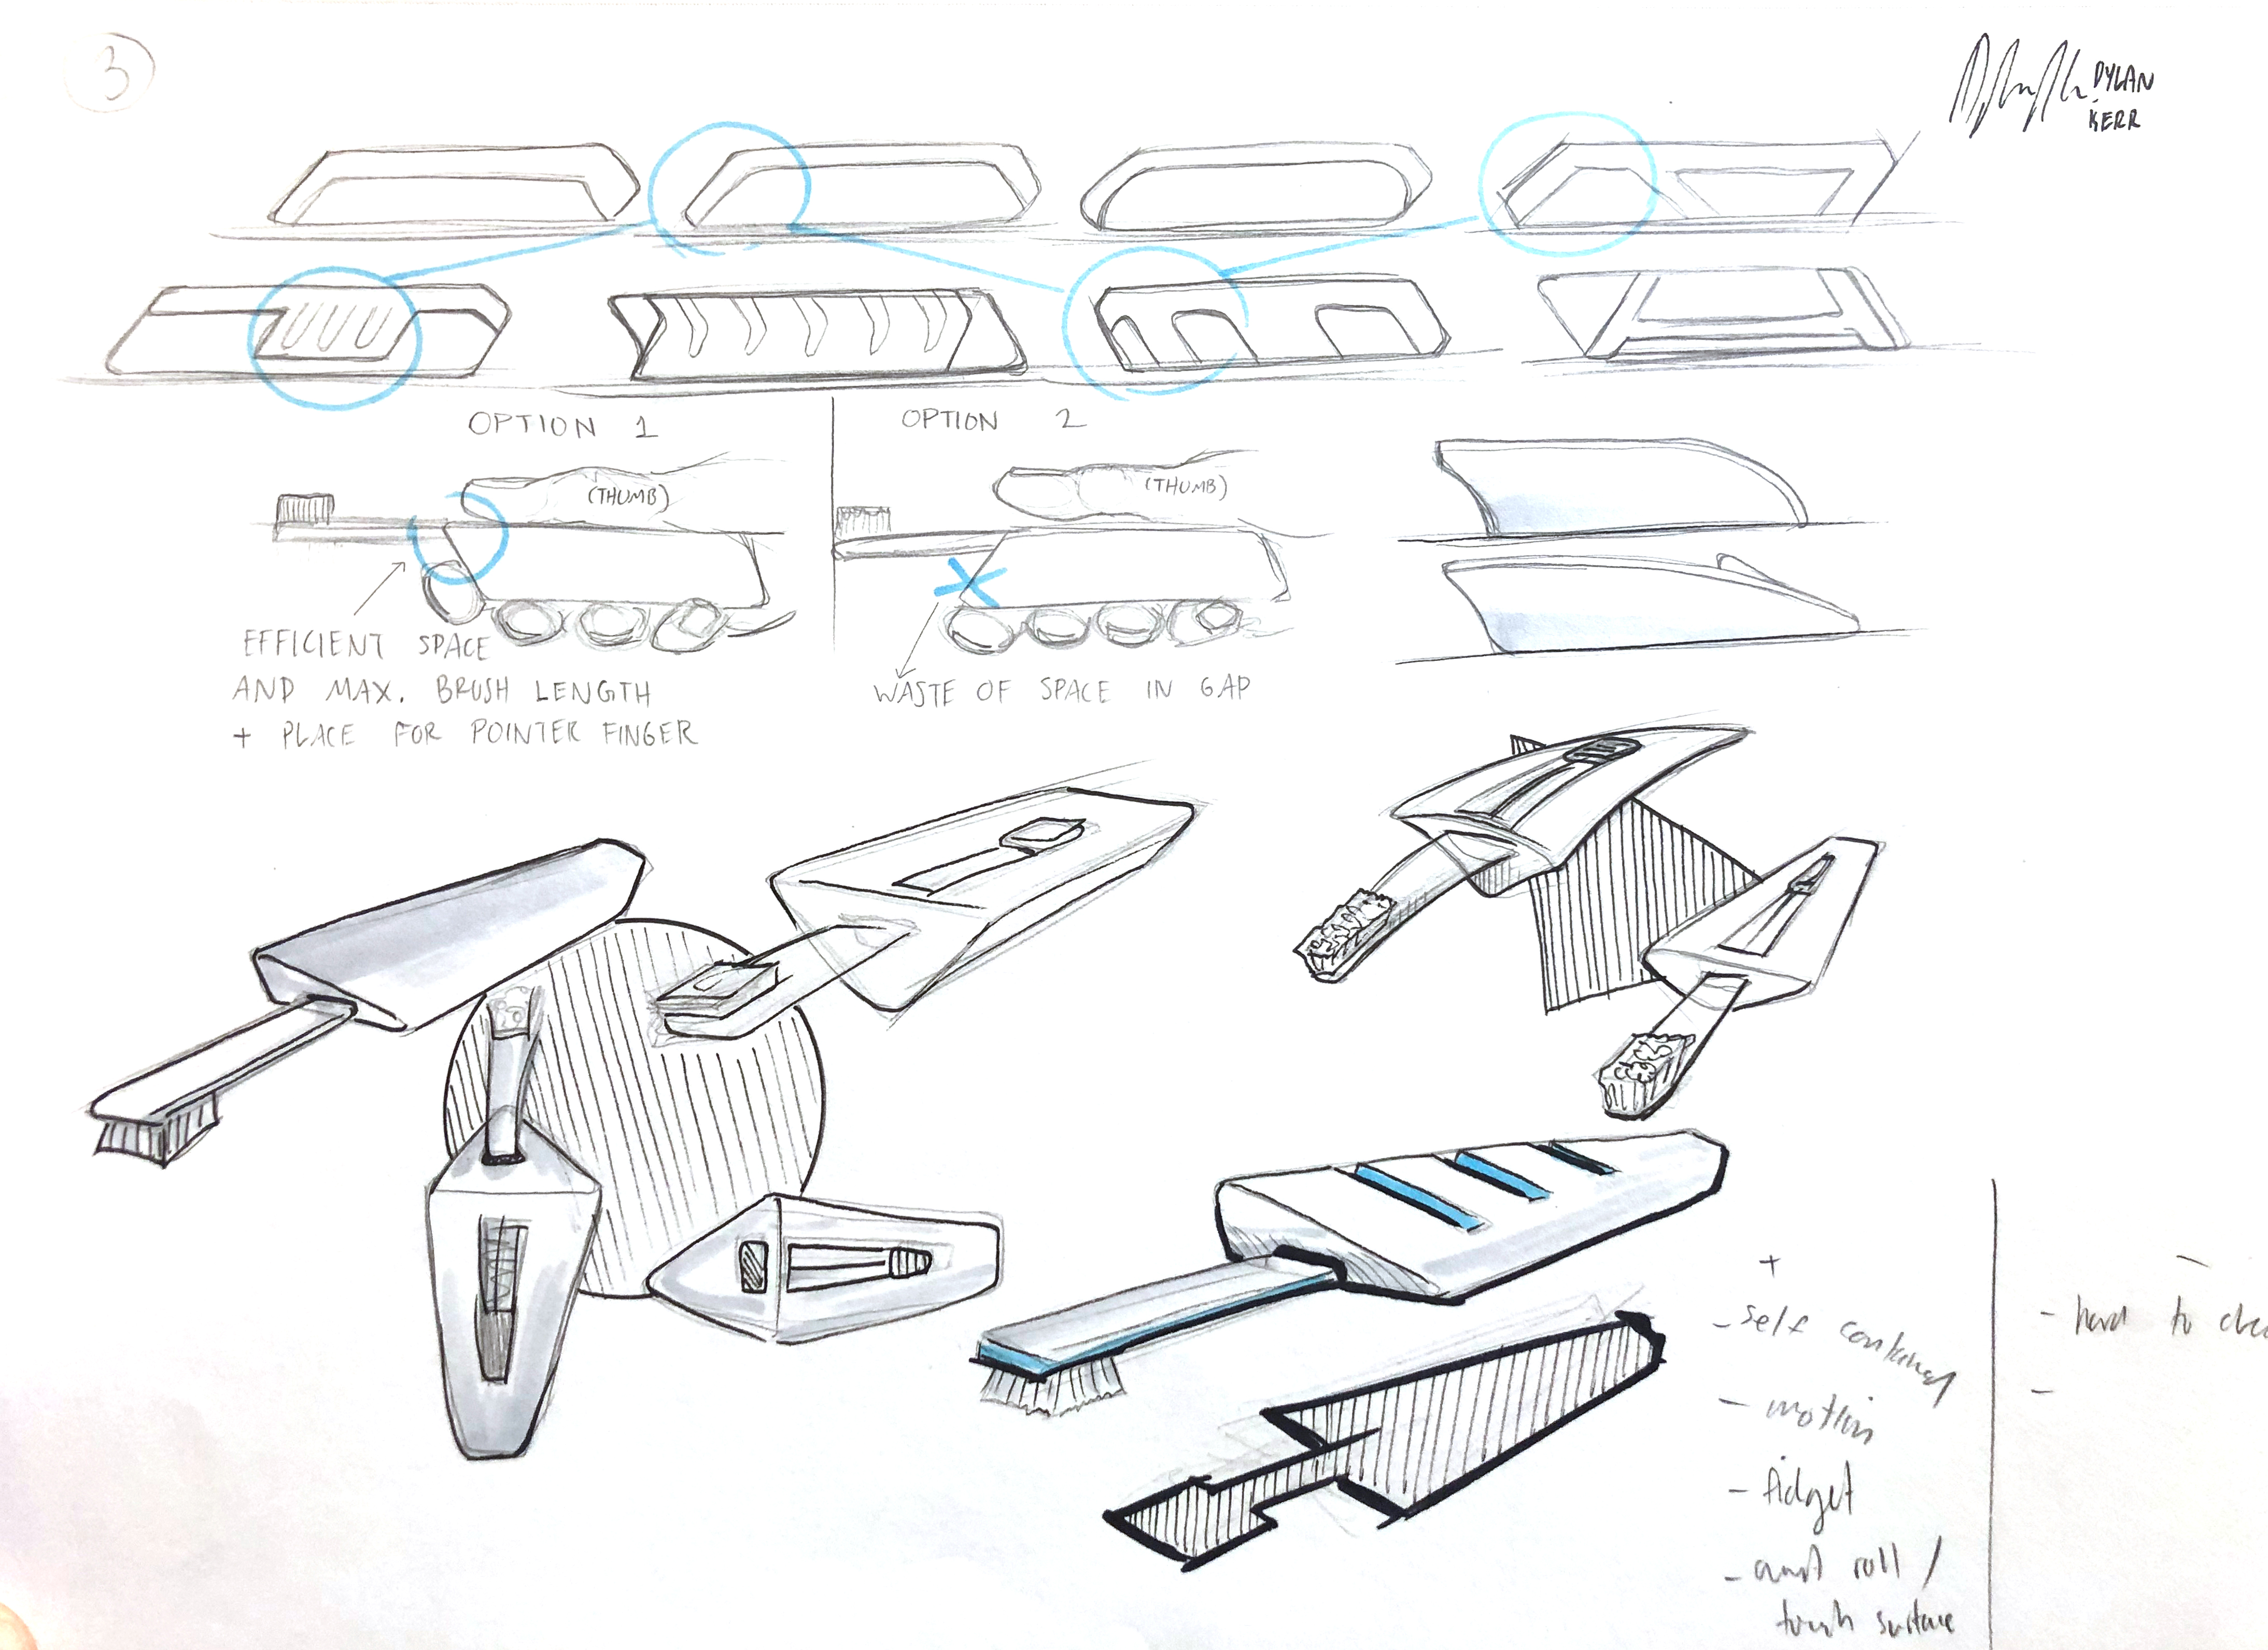 3
DYLAN
KERR
OPTION 1
OPTION 2
(THUMB)
(THUMB)
EFFICIENT SPACE
AND MAX. BRUSH LENGTH
+ PLACE FOR POINTER FINGER
WASTE OF SPACE IN GAP
+
- self contained
- motion
- fidget
- roll /
touch surface
-
- hard to
-